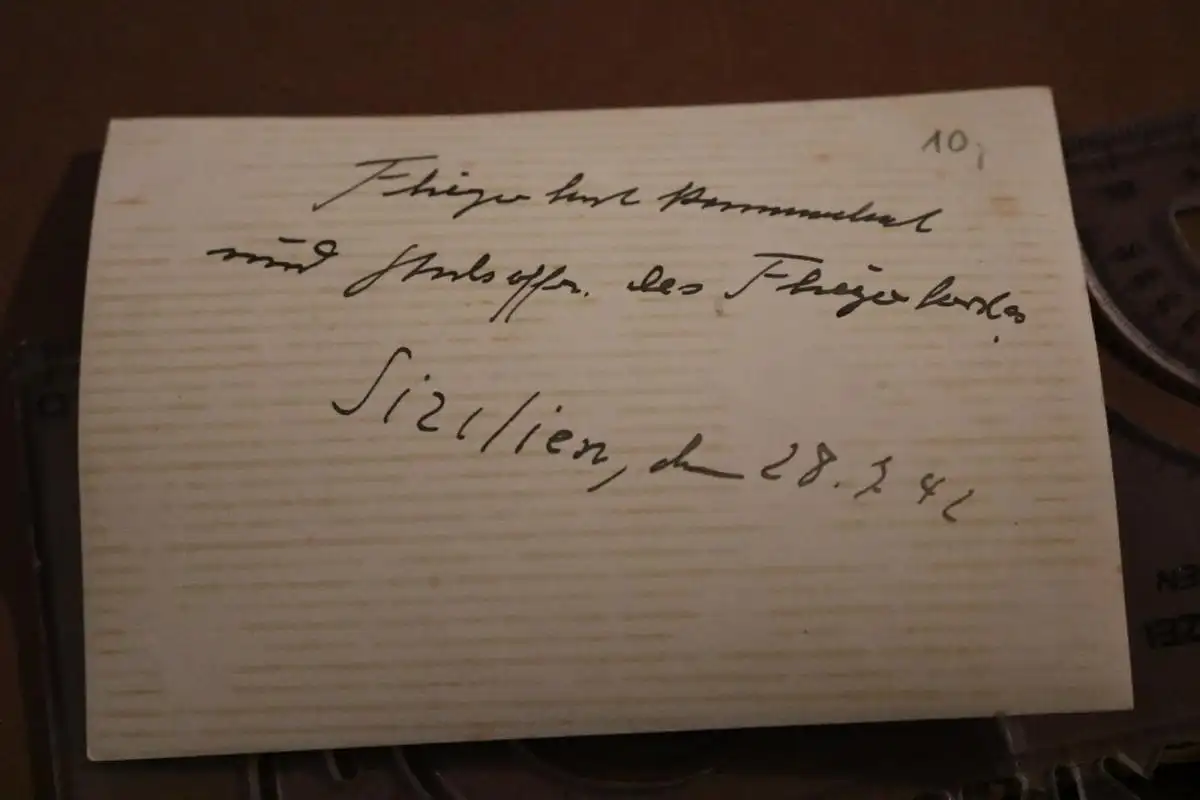 10,
Fliegerhorst Kommandant
und Stabsoffz. des Fliegerhorstes.
Sizilien, den 28. 2 42